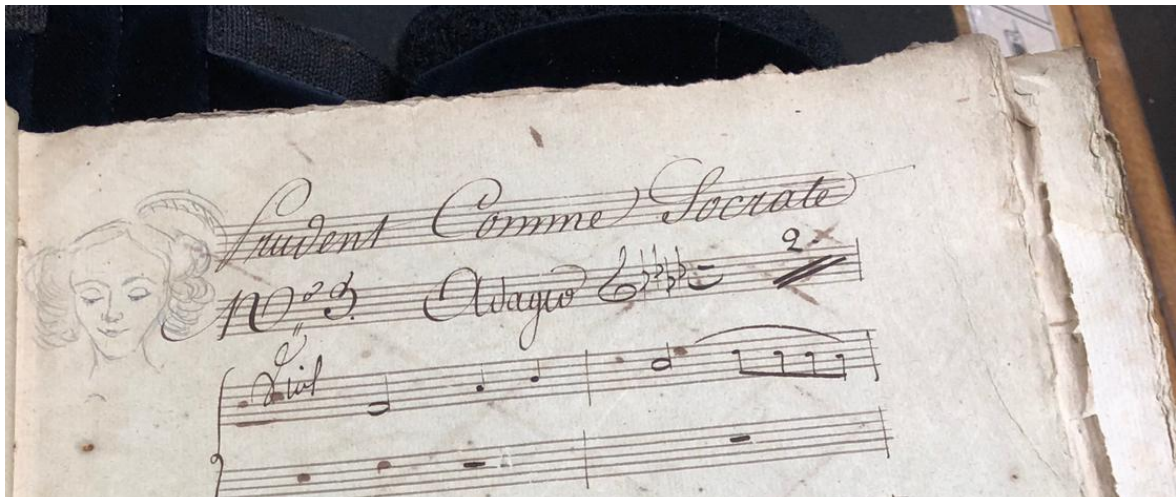 Prudent Comme Socrate
N.º 3. Adagio 2.
Viol